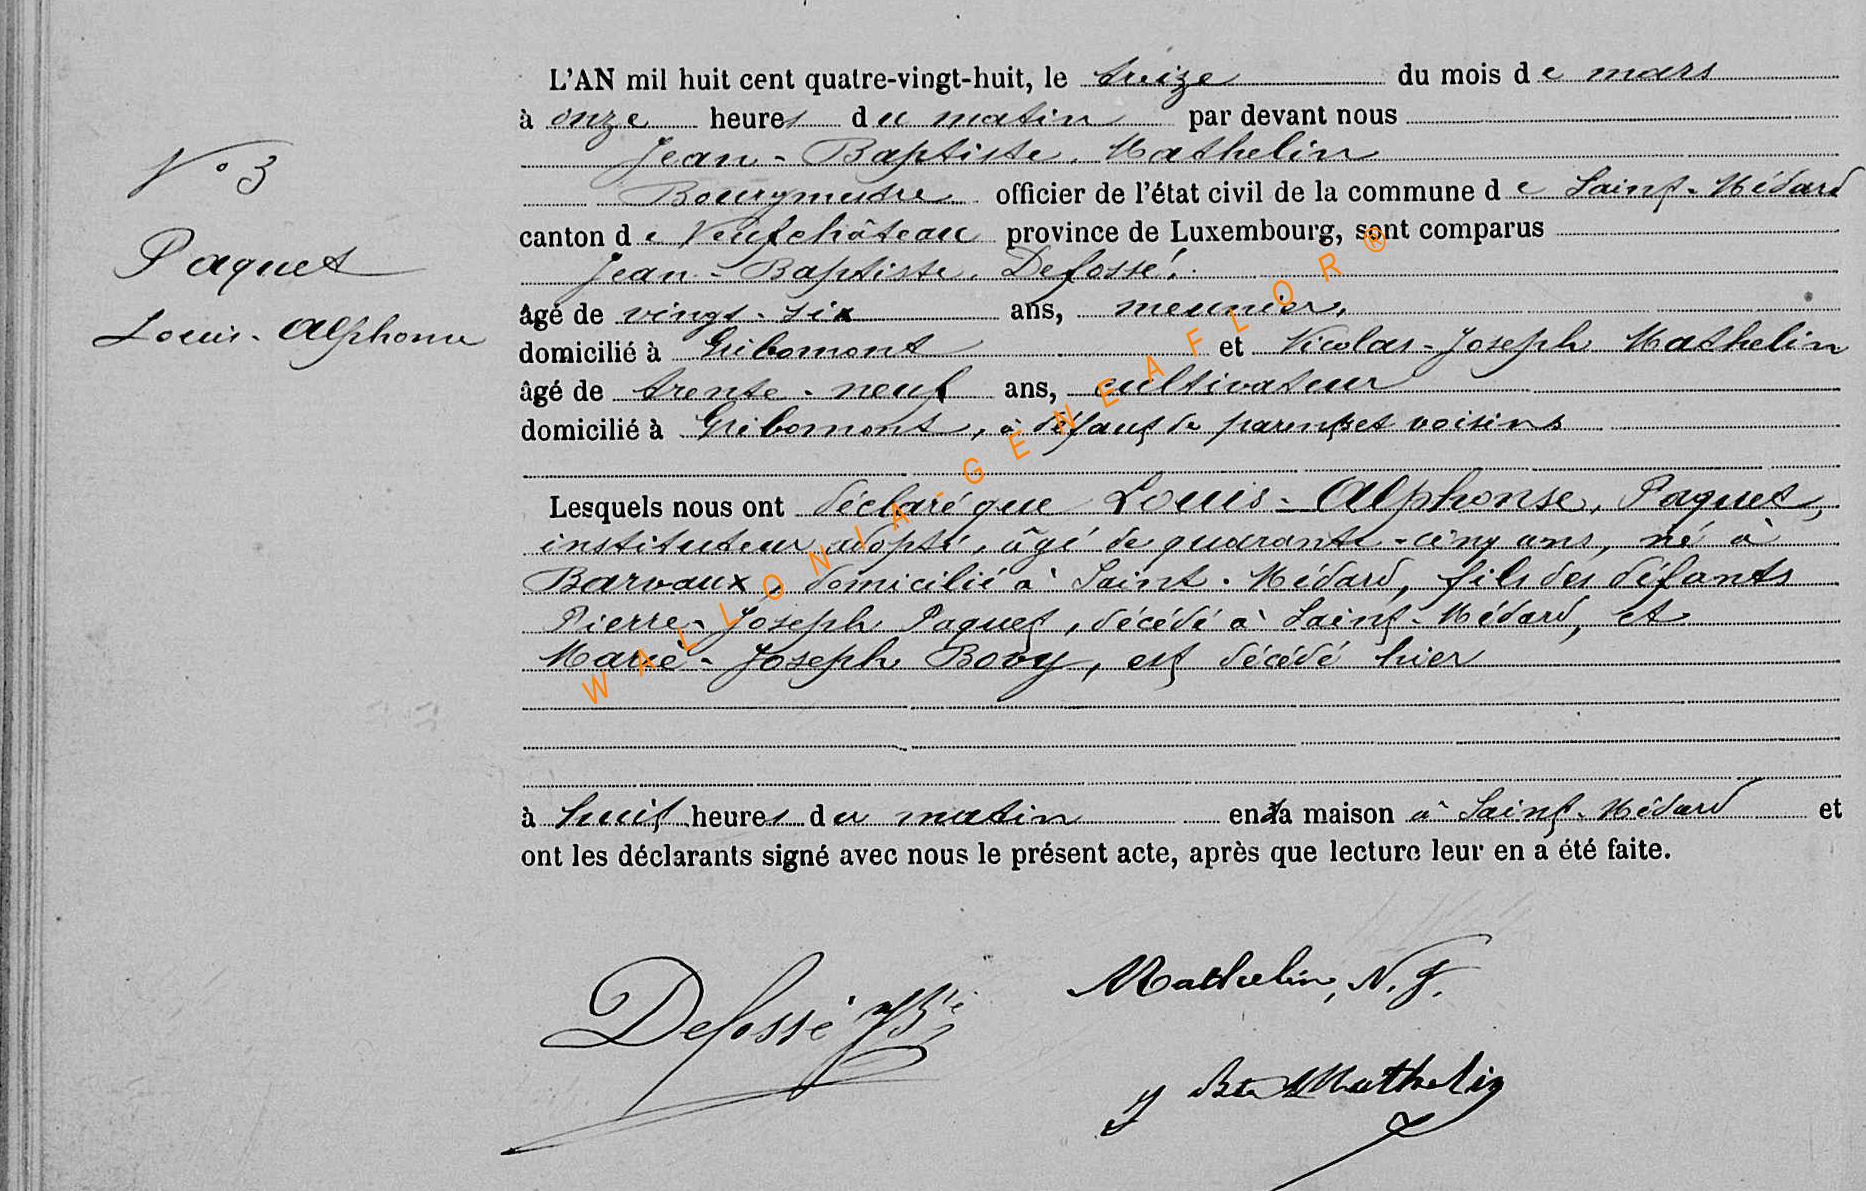 N° 3
Paquet
Louis-Alphonse
L'AN mil huit cent quatre-vingt-huit, le treize du mois de mars
à onze heures du matin par devant nous
Jean-Baptiste Mathelin
Bourgmestre officier de l'état civil de la commune de Saint-Médard
canton de Neufchâteau province de Luxembourg, sont comparus
Jean-Baptiste Defossé,
âgé de vingt-six ans, meunier,
domicilié à Gribomont et Nicolas-Joseph Mathelin
âgé de trente-neuf ans, cultivateur
domicilié à Gribomont, à défaut de parents et voisins
Lesquels nous ont déclaré que Louis-Alphonse, Paquet,
instituteur adopté, âgé de quarante-cinq ans, né à
Barvaux, domicilié à Saint-Médard, fils des défunts
Pierre-Joseph Paquet, décédé à Saint-Médard, et
Marie-Joseph Bovy, est décédé hier
à huit heures du matin en sa maison à Saint-Médard et
ont les déclarants signé avec nous le présent acte, après que lecture leur en a été faite.
Defossé JBte
Mathelin, N. J.
J Bte Mathelin
WALLONIA-GENEAFLOR®